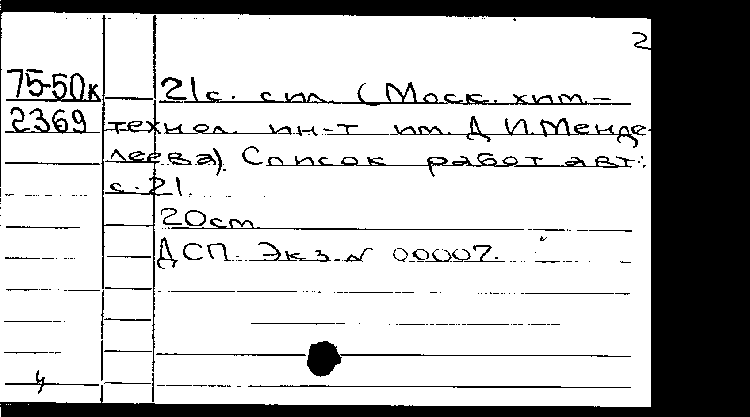 2
75-50к 21с. сил. (Моск. хим.-
2369 технол. ин-т им. Д.И.Менде-
леева). Список работ авт.:
с.21.
20см.
ДСП. Экз.N 00007.